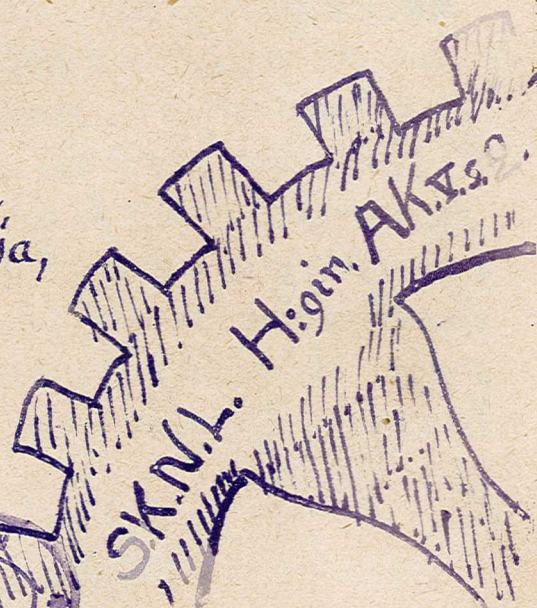 ja,
SK.N.L. H:gin. AK.V.s.2.